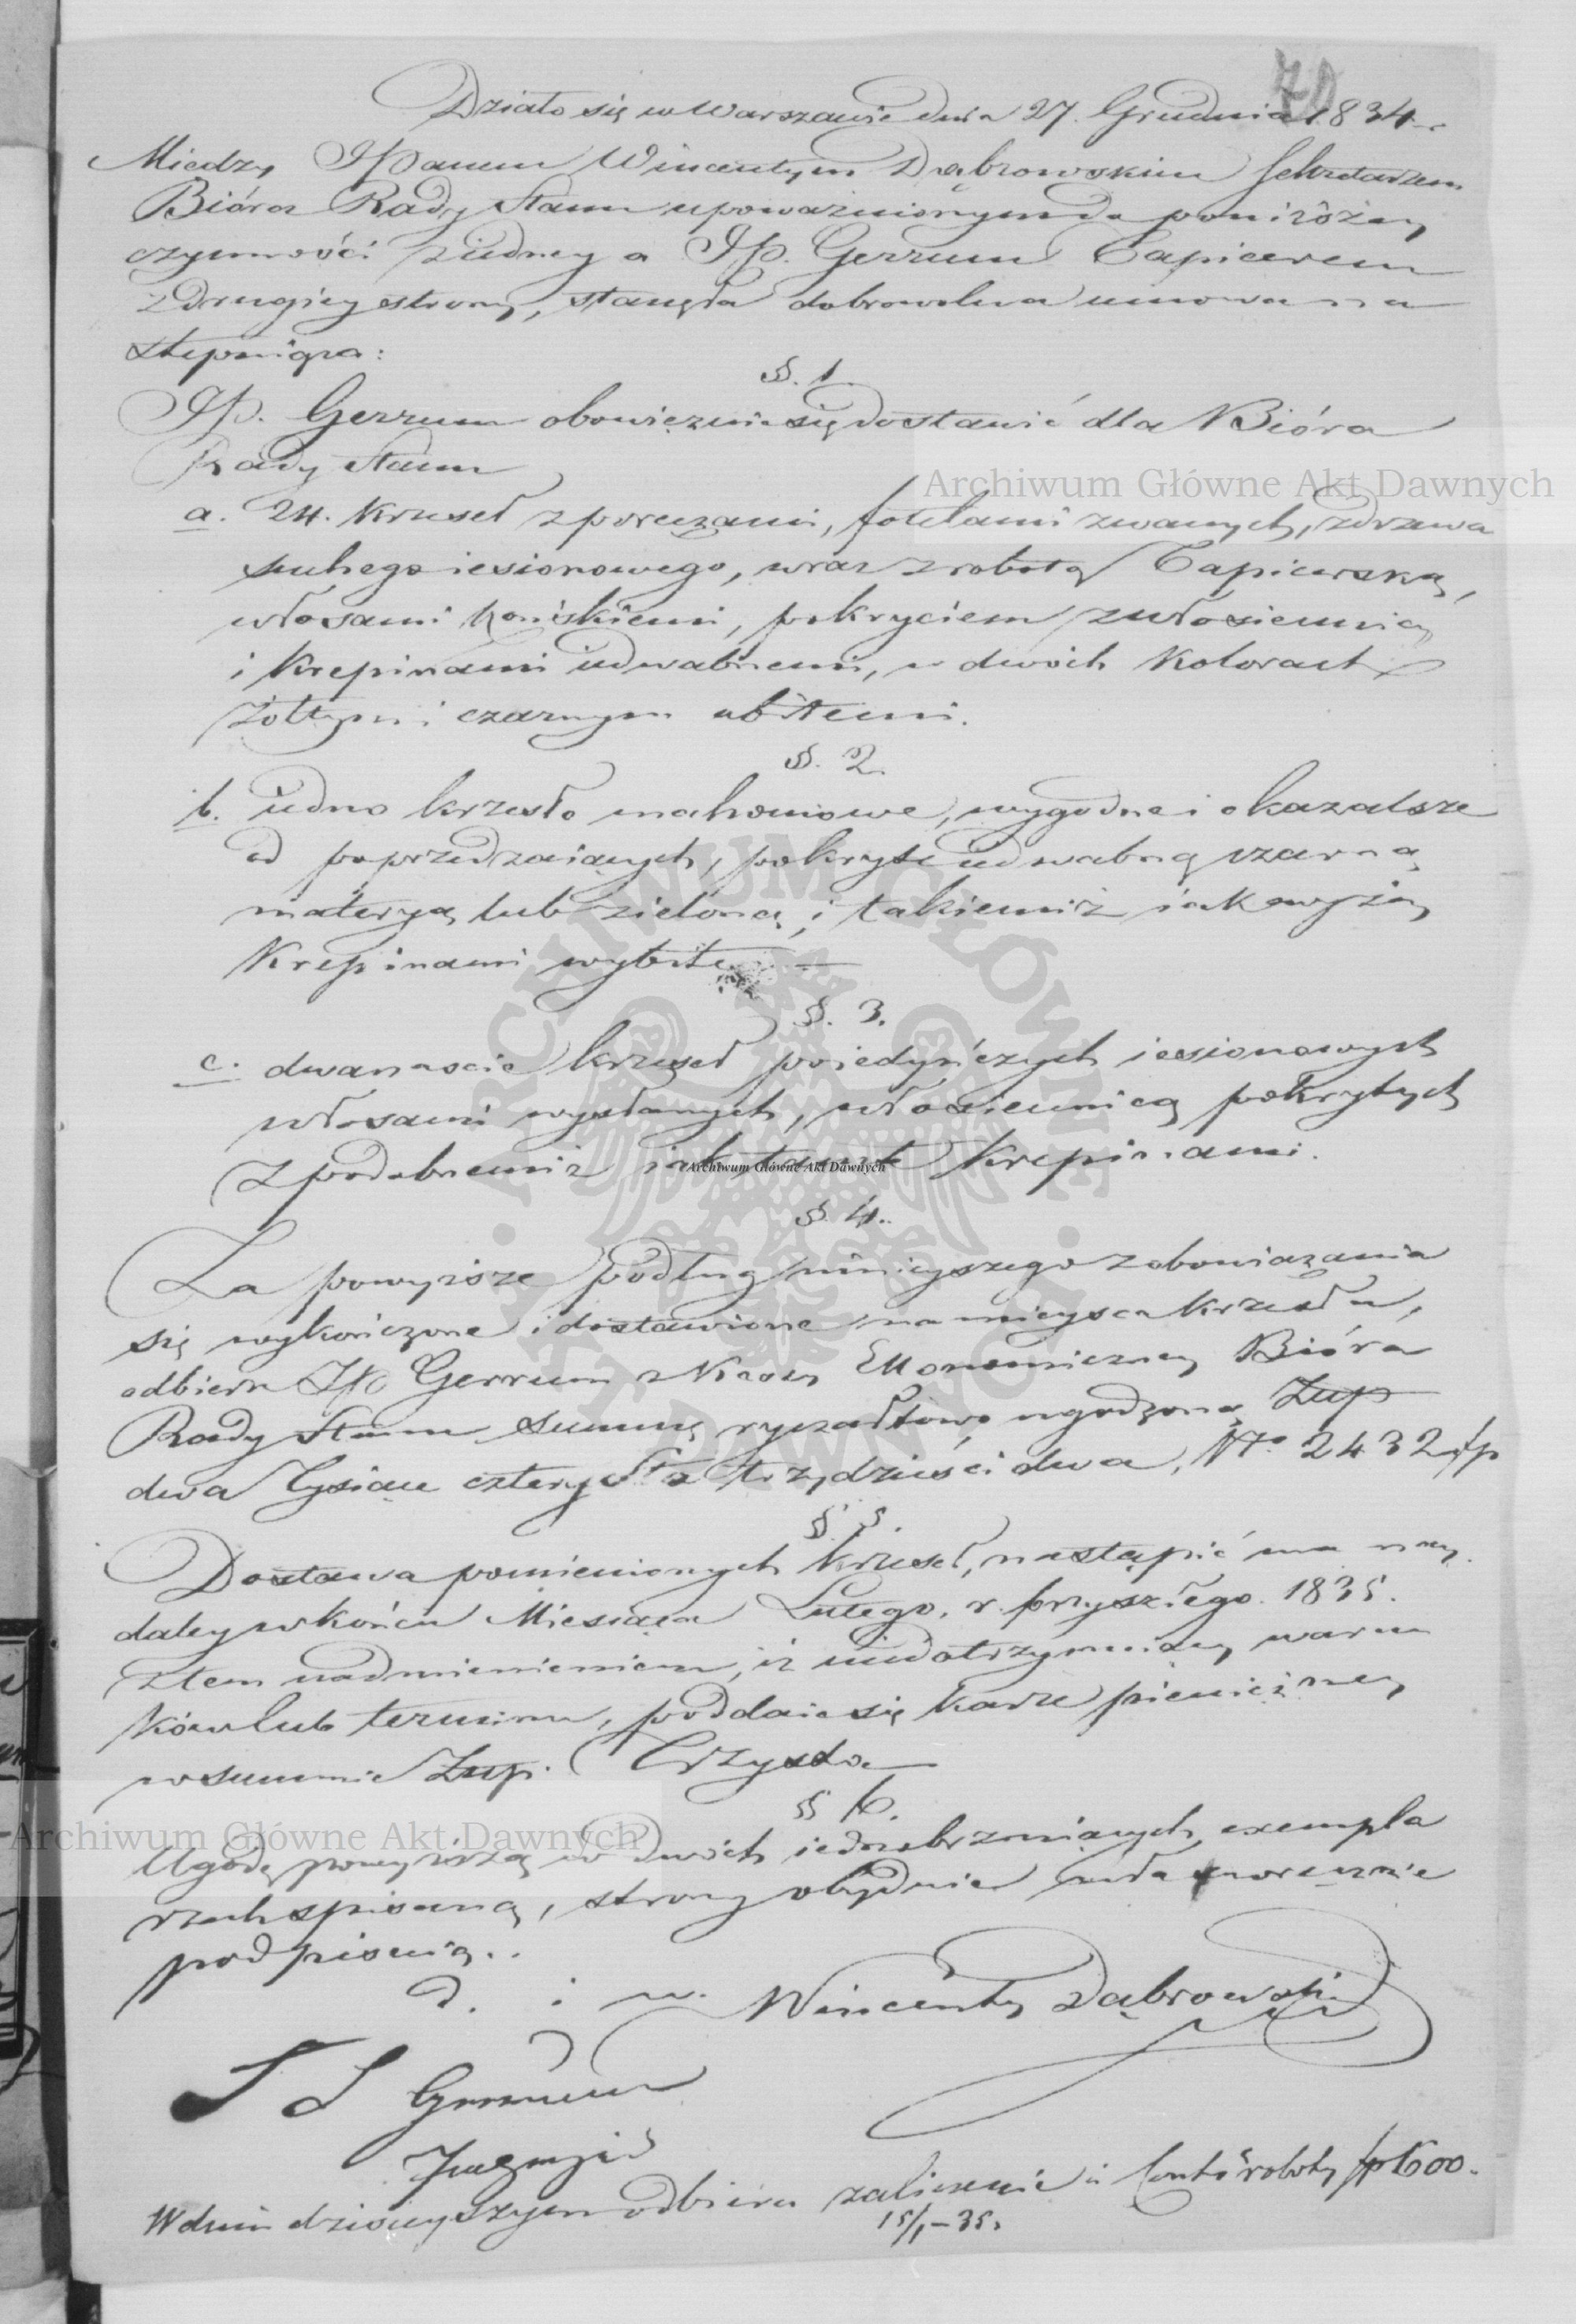 70
Działo się w Warszawie dnia 27. Grudnia 1834 r.
Między JPanem Wincentym Dąbrowskim Sekretarzem
Bióra Rady Stanu upoważnionym do poniższey
czynności z iedney a JP. Gerrum Tapicerem
z drugiéy strony, stanęła dobrowolna umowa na
stępuiąca:
§. 1.
JP. Gerrum obowięzuie się dostawić dla Bióra
Rady Stanu
a. 24. Krzeseł z poręczami, fotelami zwanych, z drzewa
suchego iesionowego, wraz z robotą Tapicerską,
włosami końskiemi, pokryciem z włosiennicy
i Krepinami iedwabnemi, w dwóch Kolorach
żółtym i czarnym obitemi.
§. 2.
b. iedno krzesło mahoniowe, wygodne i okazalsze
od poprzedzaiących, pokryte iedwabną czarną
materyą lub zieloną, i takiemiż iak wyżey
Krepinami wybite. —
§. 3.
c. dwanaście krzeseł poiedyńczych iesionowych
włosami wysłanych, włosiennicą pokrytych
z podobnemiż iak tamte Krepinami.
§ 4.
Za powyższe podług ninieyszego zobowiązania
się wykończone i dostawione na mieysca krzesła,
odbierze JP Gerrum z Kassy Ekonomiczney Bióra
Rady Stanu summę ryczałtowo ugodzoną Złłp
dwa Tysiące czterysta trzydzieści dwa, No. 2432 złp
§. 5.
Dostawa pomienionych krzeseł, nastąpić ma nay
daley w końcu Miesiąca Lutego, r. przyszłego. 1835.
z tem nadmienieniem, iż niedotrzymuiący warun
ków lub terminu, poddaie się karze pieniężney
w summie Złłp. Trzysta —
§ 6.
Ugodę powyższą w dwóch iednobrzmiących exempla
rzach spisaną, strony obydwie własnoręcznie
podpisuią..
d. i w. Wincenty Dąbrowski
Gerrum
W dniu dzisieyszym odbiera zaliczenie à Conto roboty złp 600.
15/1 – 35.
Archiwum Główne Akt Dawnych
Archiwum Główne Akt Dawnych
Archiwum Główne Akt Dawnych
ARCHIWUM GŁÓWNE AKT DAWNYCH